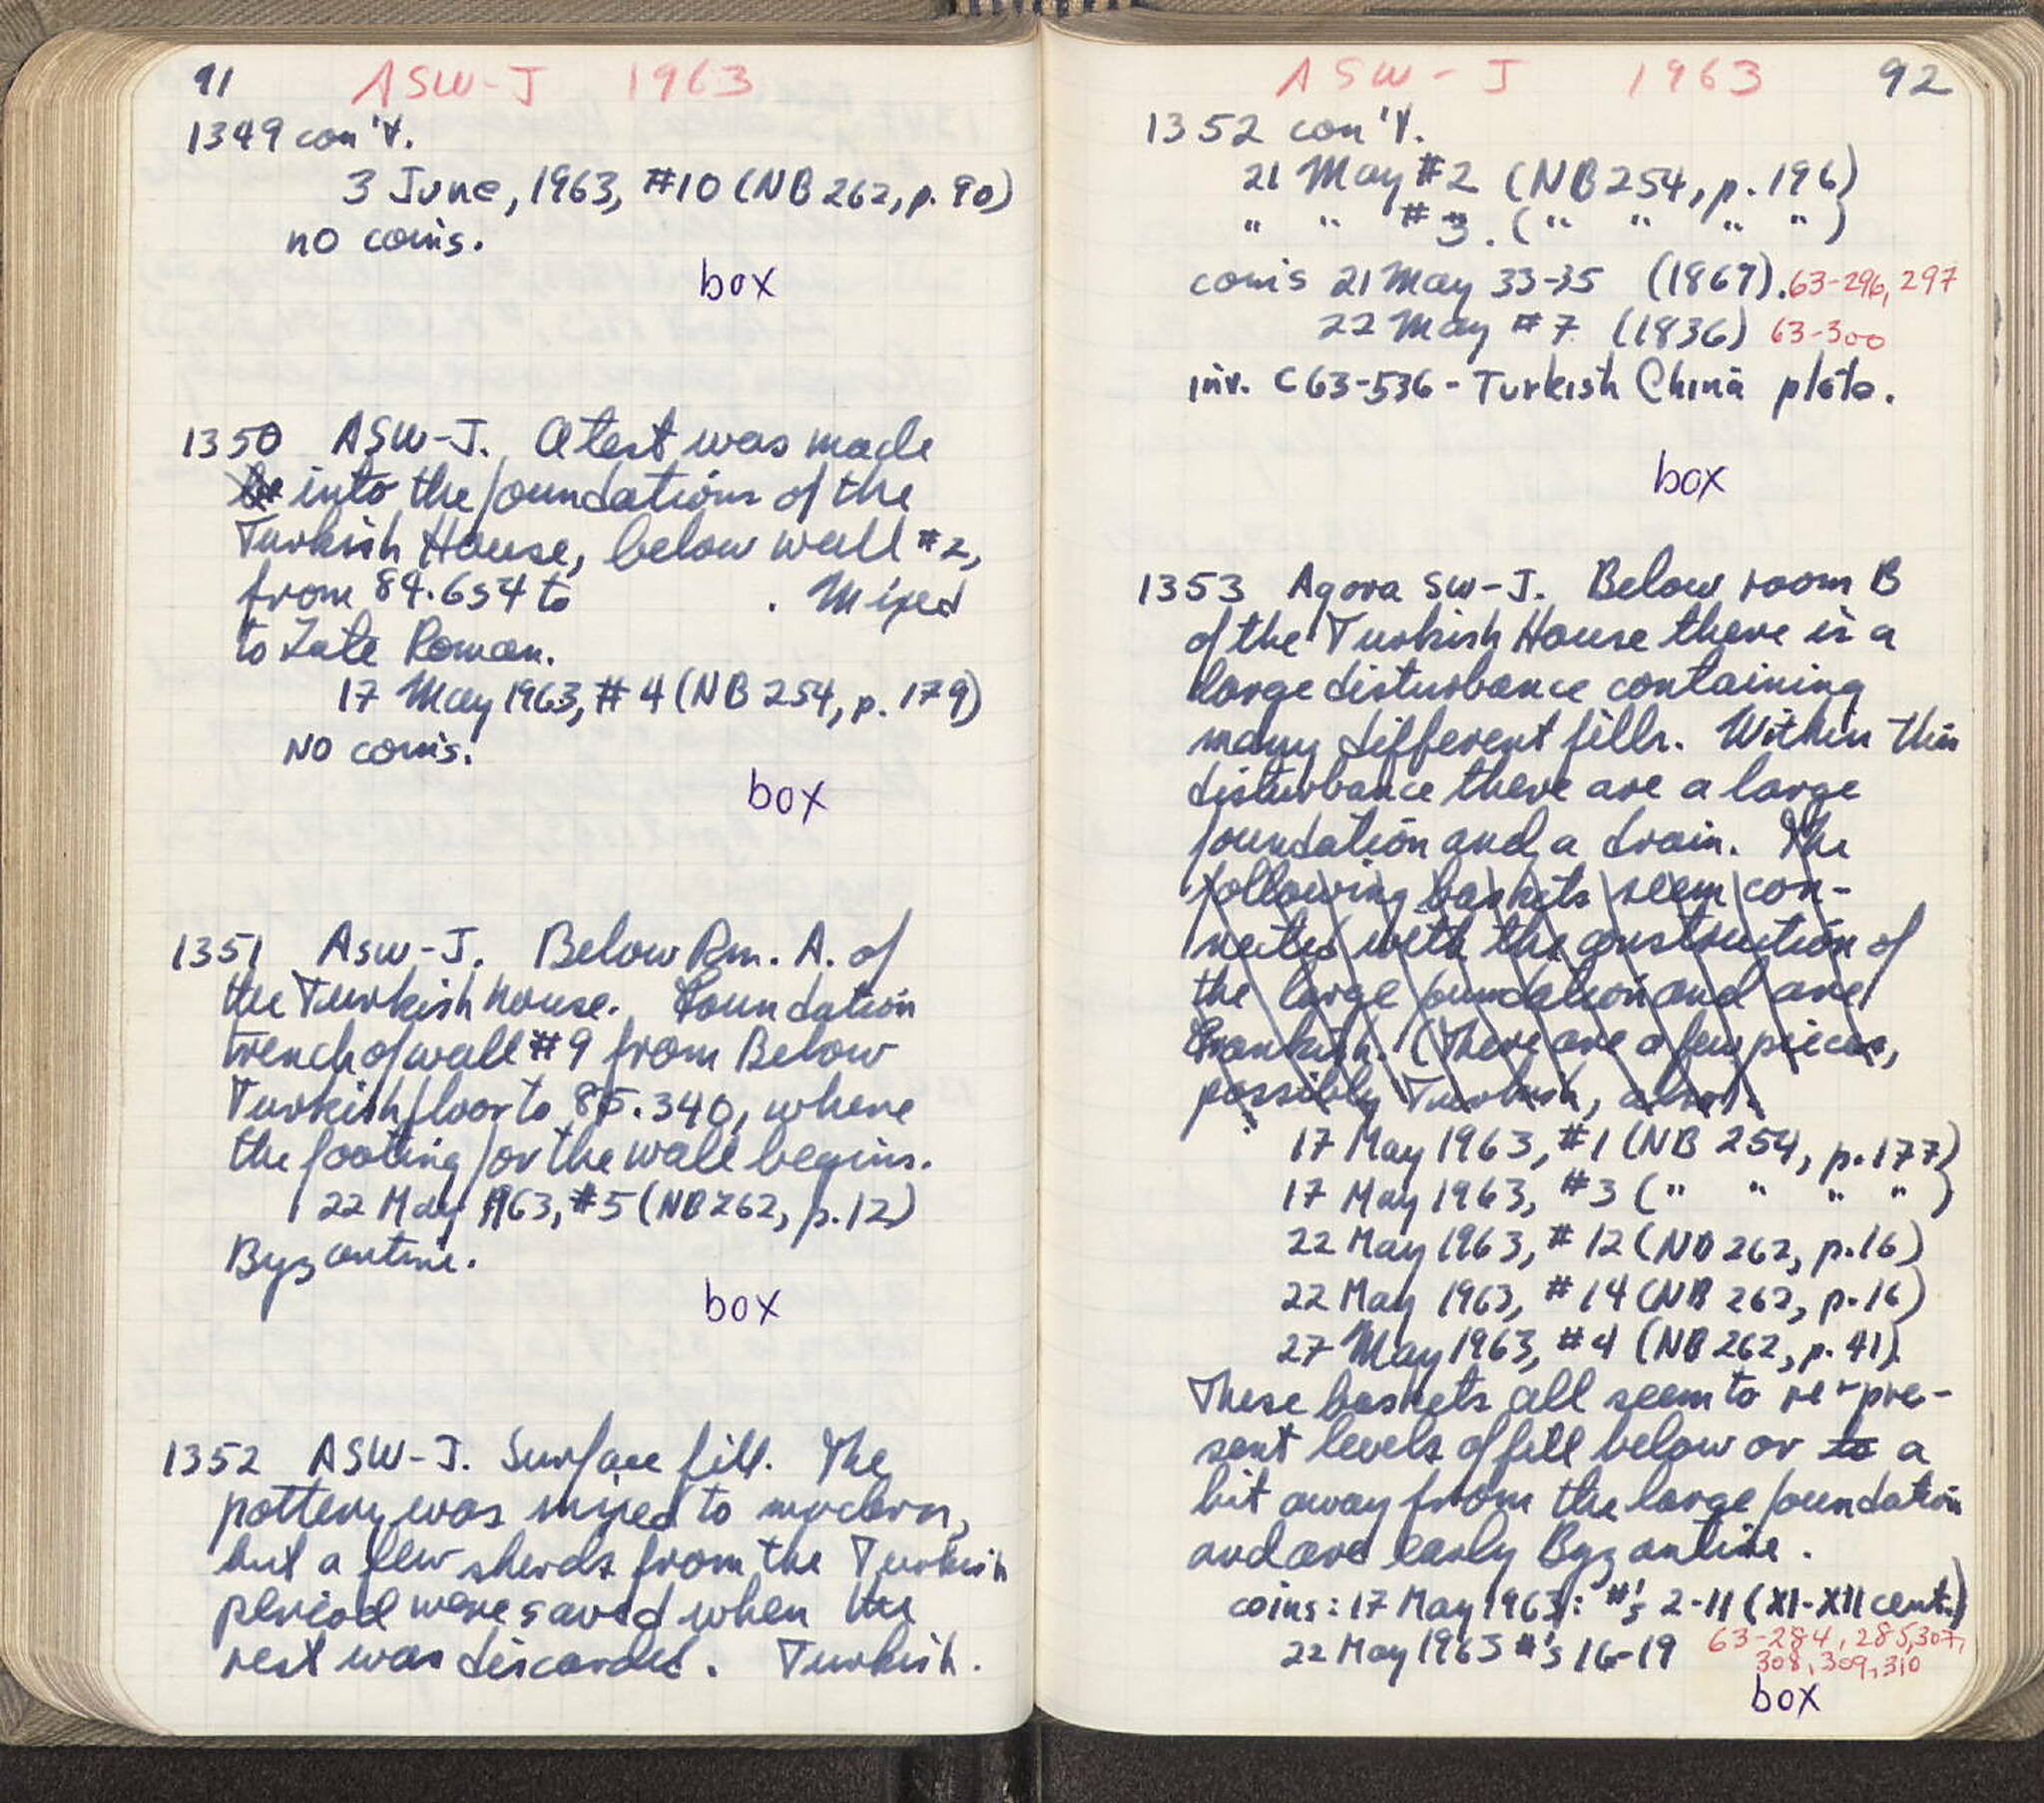 91 ASW-J 1963
1349 con't.
3 June, 1963, #10 (NB 262, p. 90)
no coins.
box
1350 ASW-J. A test was made
into the foundations of the
Turkish House, below wall #2,
from 84.654 to . Mixed
to Late Roman.
17 May 1963, #4 (NB 254, p. 179)
No coins.
box
1351 ASW-J. Below Rm. A. of
the Turkish house. Foundation
trench of wall #9 from Below
Turkish floor to 85.340, where
the footing for the wall begins.
22 May 1963, #5 (NB 262, p. 12)
Byzantine.
box
1352 ASW-J. Surface fill. The
pottery was mixed to modern,
but a few sherds from the Turkish
period were saved when the
rest was discarded. Turkish.
ASW-J 1963 92
1352 con't.
21 May #2 (NB 254, p. 196)
" " #3. (" " " ")
coins 21 May 33-35 (1869). 63-296, 297
22 May #7 (1836) 63-300
inv. C63-536 - Turkish China plate.
box
1353 Agora SW-J. Below room B
of the Turkish House there is a
large disturbance containing
many different fills. Within this
disturbance there are a large
foundation and a drain. The
following baskets seem con-
nected with the construction of
the large foundation and are
Frankish. (There are a few pieces,
possibly Turkish, also).
17 May 1963, #1 (NB 254, p. 177)
17 May 1963, #3 (" " " ")
22 May 1963, #12 (NB 262, p. 16)
22 May 1963, #14 (NB 262, p. 16)
27 May 1963, #4 (NB 262, p. 41).
These baskets all seem to re-pre-
sent levels of fill below or to a
bit away from the large foundation
and are early Byzantine.
coins: 17 May 1963: #'s 2-11 (XI-XII cent.)
22 May 1963 #'s 16-19 63-284, 285, 307,
308, 309, 310
box